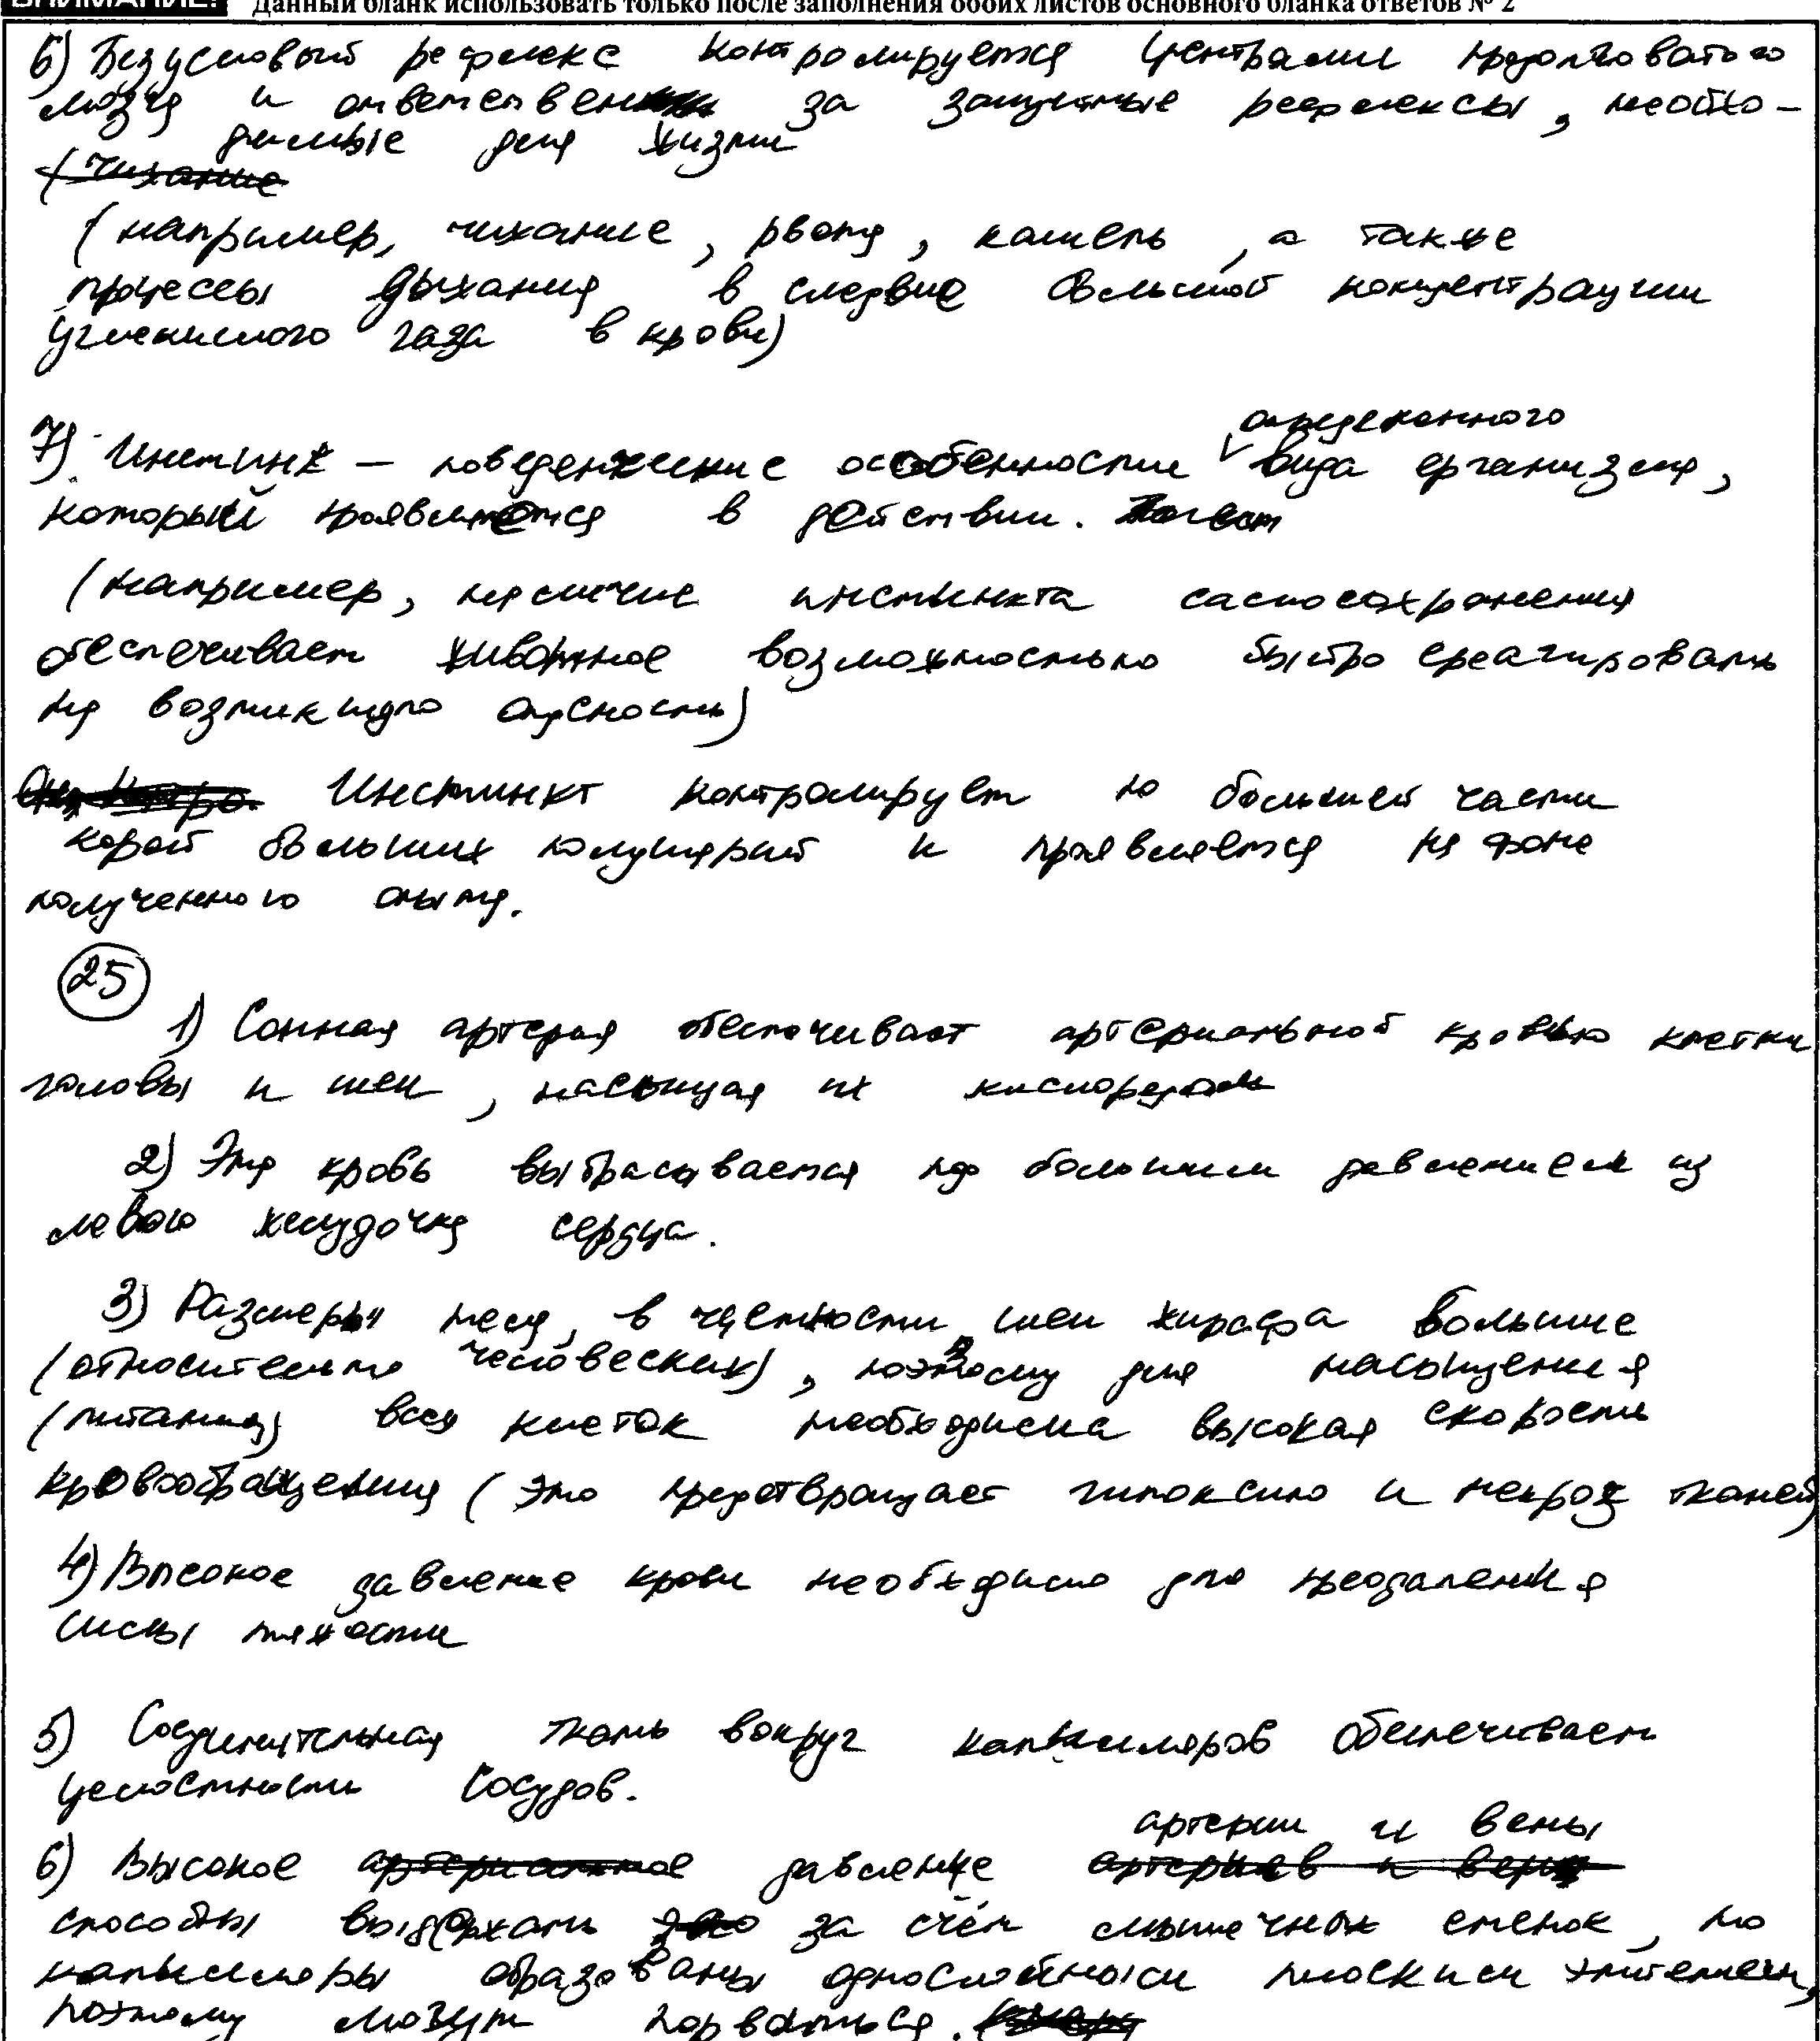 ВНИМАНИЕ! Данный бланк использовать только после заполнения обоих листов основного бланка ответов № 2
6) Безусловный рефлекс контролируется центрами продолговатого
мозга и ответственен за защитные рефлексы, необхо-
димые для жизни
(чихание
(например, чихание, рвота, кашель, а также
процессы дыхания в следвие большой концентрации
углекислого газа в крови)
7) Инстинк – поведенческие особенности определенного вида организма,
который проявляется в действии.
(например, наличие инстинкта самосохранения
обеспечивает животное возможностью быстро среагировать
на возникшую опасность)
Инстинкт контролирует по большей части
корой больших полушарий и проявляется на фоне
полученного опыта.
25
1) Сонная артерия обеспечивает артериальной кровью клетки
головы и шеи, насыщая их кислородом
2) Эта кровь выбрасывается под большим давлением из
левого желудочка сердца.
3) Размеры тела, в частности, шеи жирафа большие
(относительно человеских), поэтому для насыщения
(питания) всех клеток необходима высокая скорость
кровообращения (это предотвращает гипоксию и некроз тканей)
4) Высокое давление крови необходимо для преодаления
силы тяжести
5) Соединительная ткань вокруг капилляров обеспечивает
целостность сосудов.
6) Высокое артериальное давление артерии и вены
способны выдержать за счёт мышечных стенок, но
капилляры образованы однослойным плоским эпителием,
поэтому могут порваться.